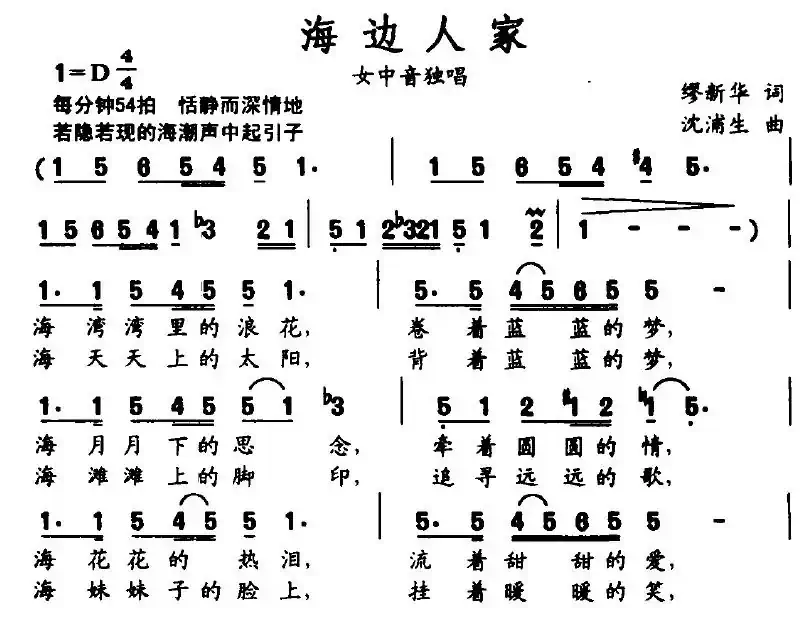 海边人家
1=D 4/4
女中音独唱
每分钟54拍 恬静而深情地
缪新华 词
若隐若现的海潮声中起引子
沈浦生 曲
( 1 5 6 5 4 5 1· | 1 5 6 5 4 #4 5· |
1 5 6 5 4 1 b3 2 1 | 5 1 2 b3 2 1 5 1 2 | 1 - - - )
1· 1 5 4 5 5 1· | 5· 5 4 5 6 5 5 -
海 湾 湾 里 的 浪 花, 卷 着 蓝 蓝 的 梦,
海 天 天 上 的 太 阳, 背 着 蓝 蓝 的 梦,
1· 1 5 4 5 5 1 b3 | 5 1 2 #1 2 ♮1 5·
海 月 月 下 的 思 念, 牵 着 圆 圆 的 情,
海 滩 滩 上 的 脚 印, 追 寻 远 远 的 歌,
1· 1 5 4 5 5 1· | 5· 5 4 5 6 5 5 -
海 花 花 的 热 泪, 流 着 甜 甜 的 爱,
海 妹 妹 子 的 脸 上, 挂 着 暖 暖 的 笑,